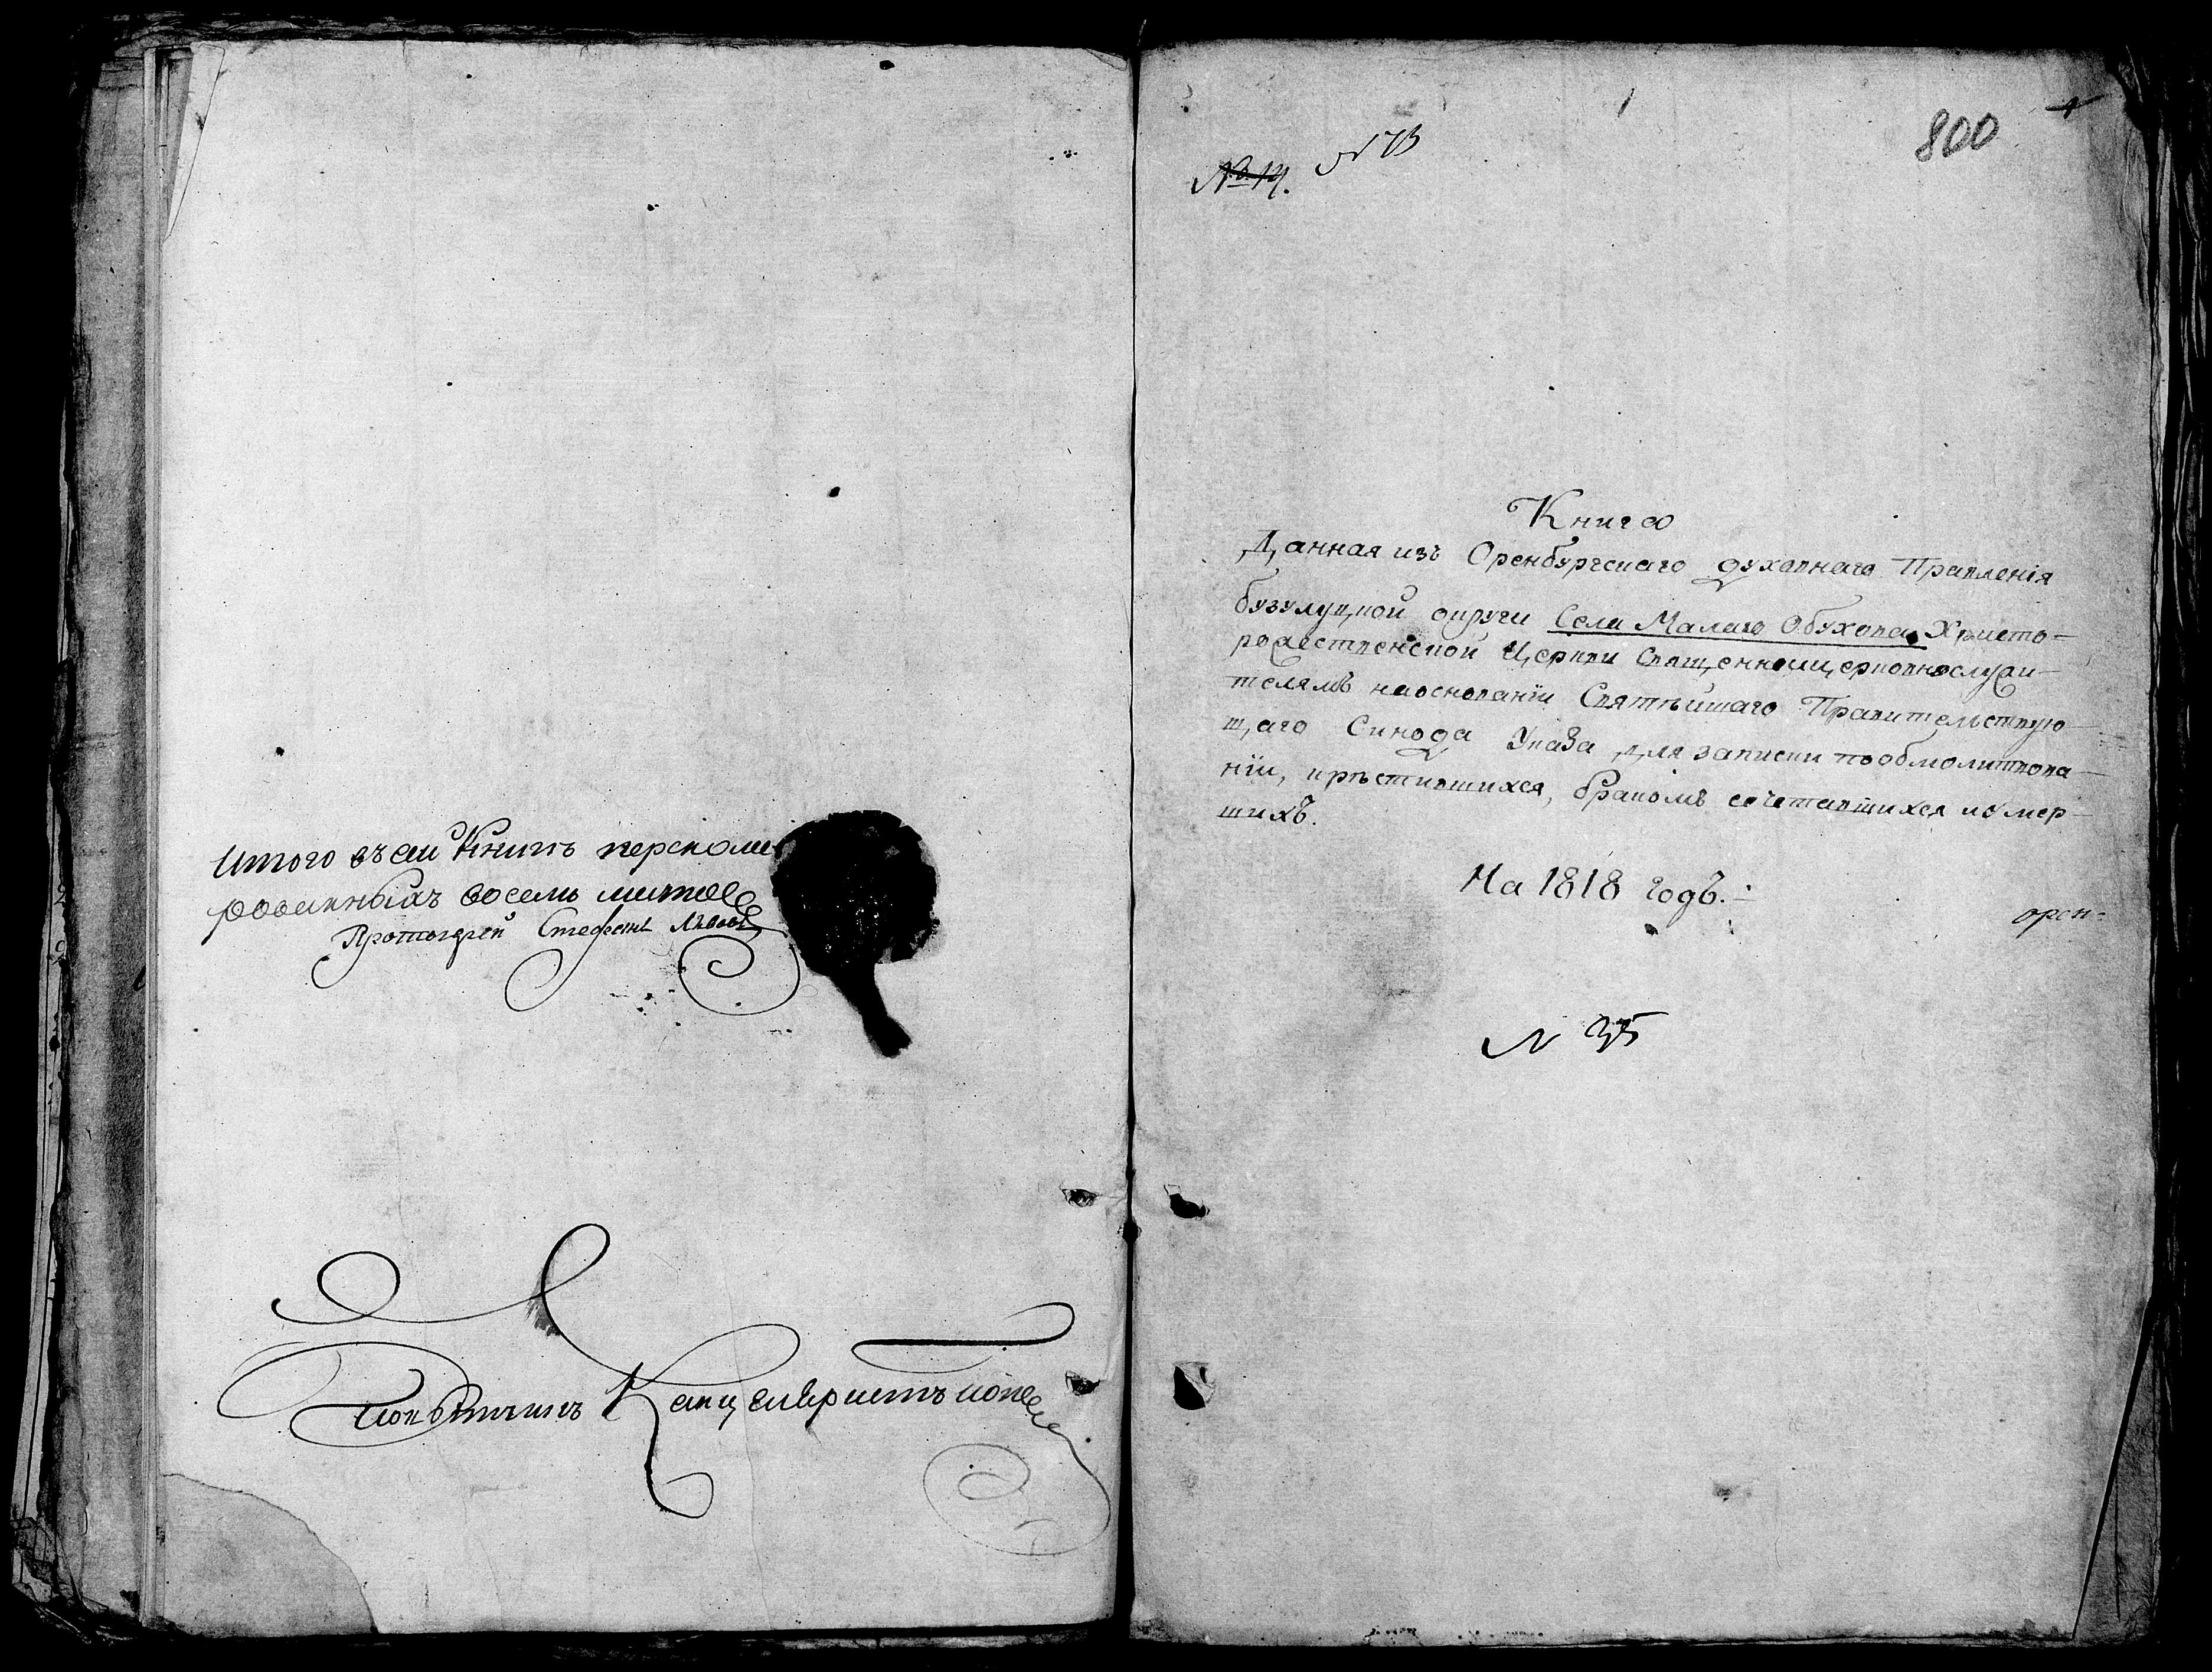 Итого въ сей Книгѣ перекоми
рованныхъ восемь листов
Протоіерей Стефанъ Львовъ
Канцеляристъ Попов
№ 14.
N 73
800
1
Книга
Данная изъ Оренбургскаго духовнаго Правленія
бузулуцкой округи Села Малаго Обухова Христо-
рождественской Церкви Священноицерковнослужи-
телямъ наоснованіи Святѣйшаго Правительствую-
щаго Синода Указа для записки пообмолитвова-
ніи, крѣстившихся, бракомъ сочетавшихся иомер-
шихъ.
На 1818 годъ.
орен-
N 35